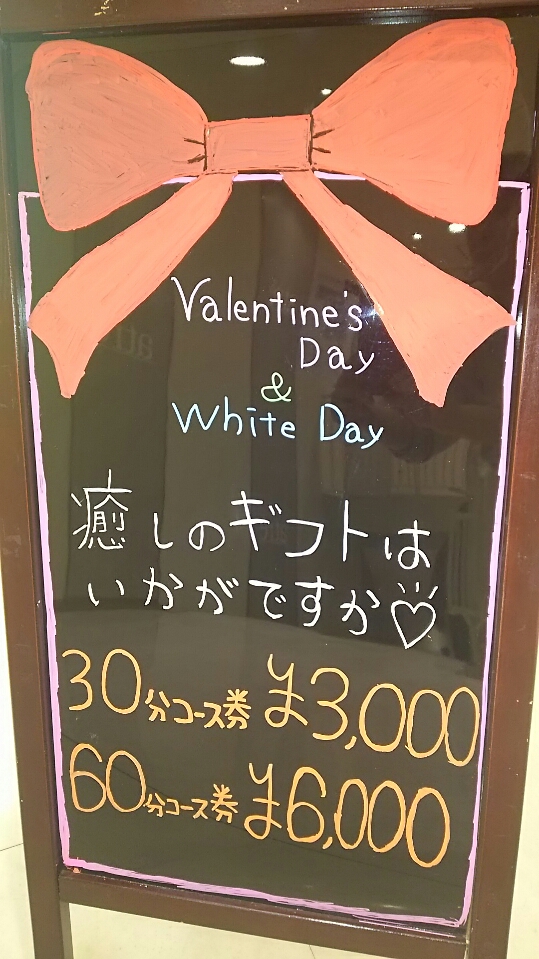 Valentine's
Day
&
White Day
癒しのギフトは
いかがですか♡
30分コース券 ¥3,000
60分コース券 ¥6,000